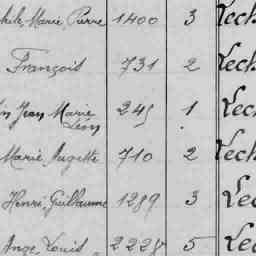 Marie Pierre 1400 3 Lech
François 731 2 Lech
Jean Marie Léon 245 1 Lech
Marie Augette 710 2 Lech
Henri Guillaume 1289 3 Lec
Ange Louis 2225 5 Lec